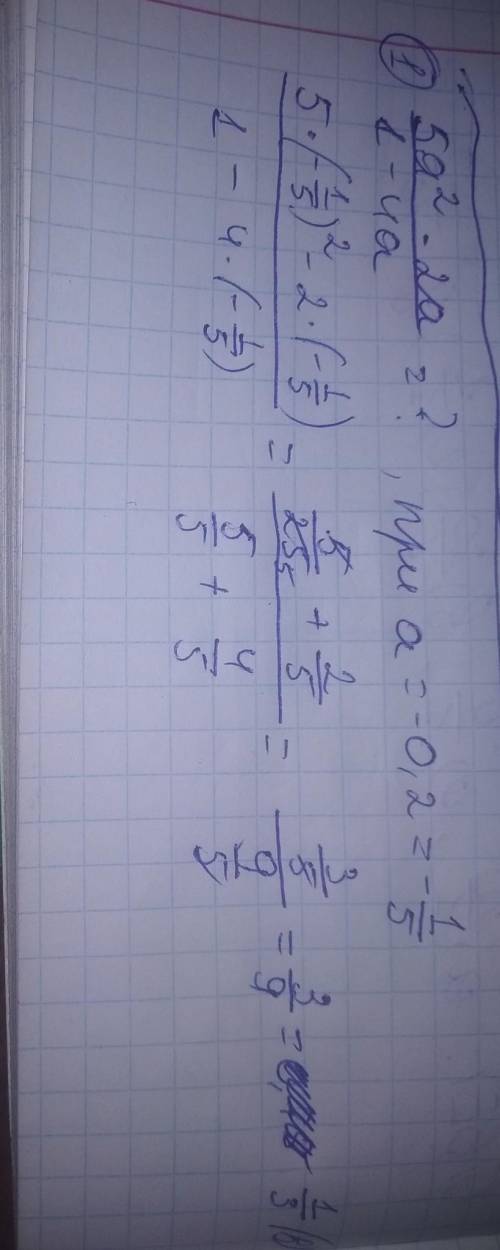 ① (5a² - 2a)/(1 - 4a) = ? , при a = -0,2 = -1/5
(5·(-1/5)² - 2·(-1/5))/(1 - 4·(-1/5)) = (5/25 5 + 2/5)/(5/5 + 4/5) = (3/5)/(9/5) = 3/9 = 1/3